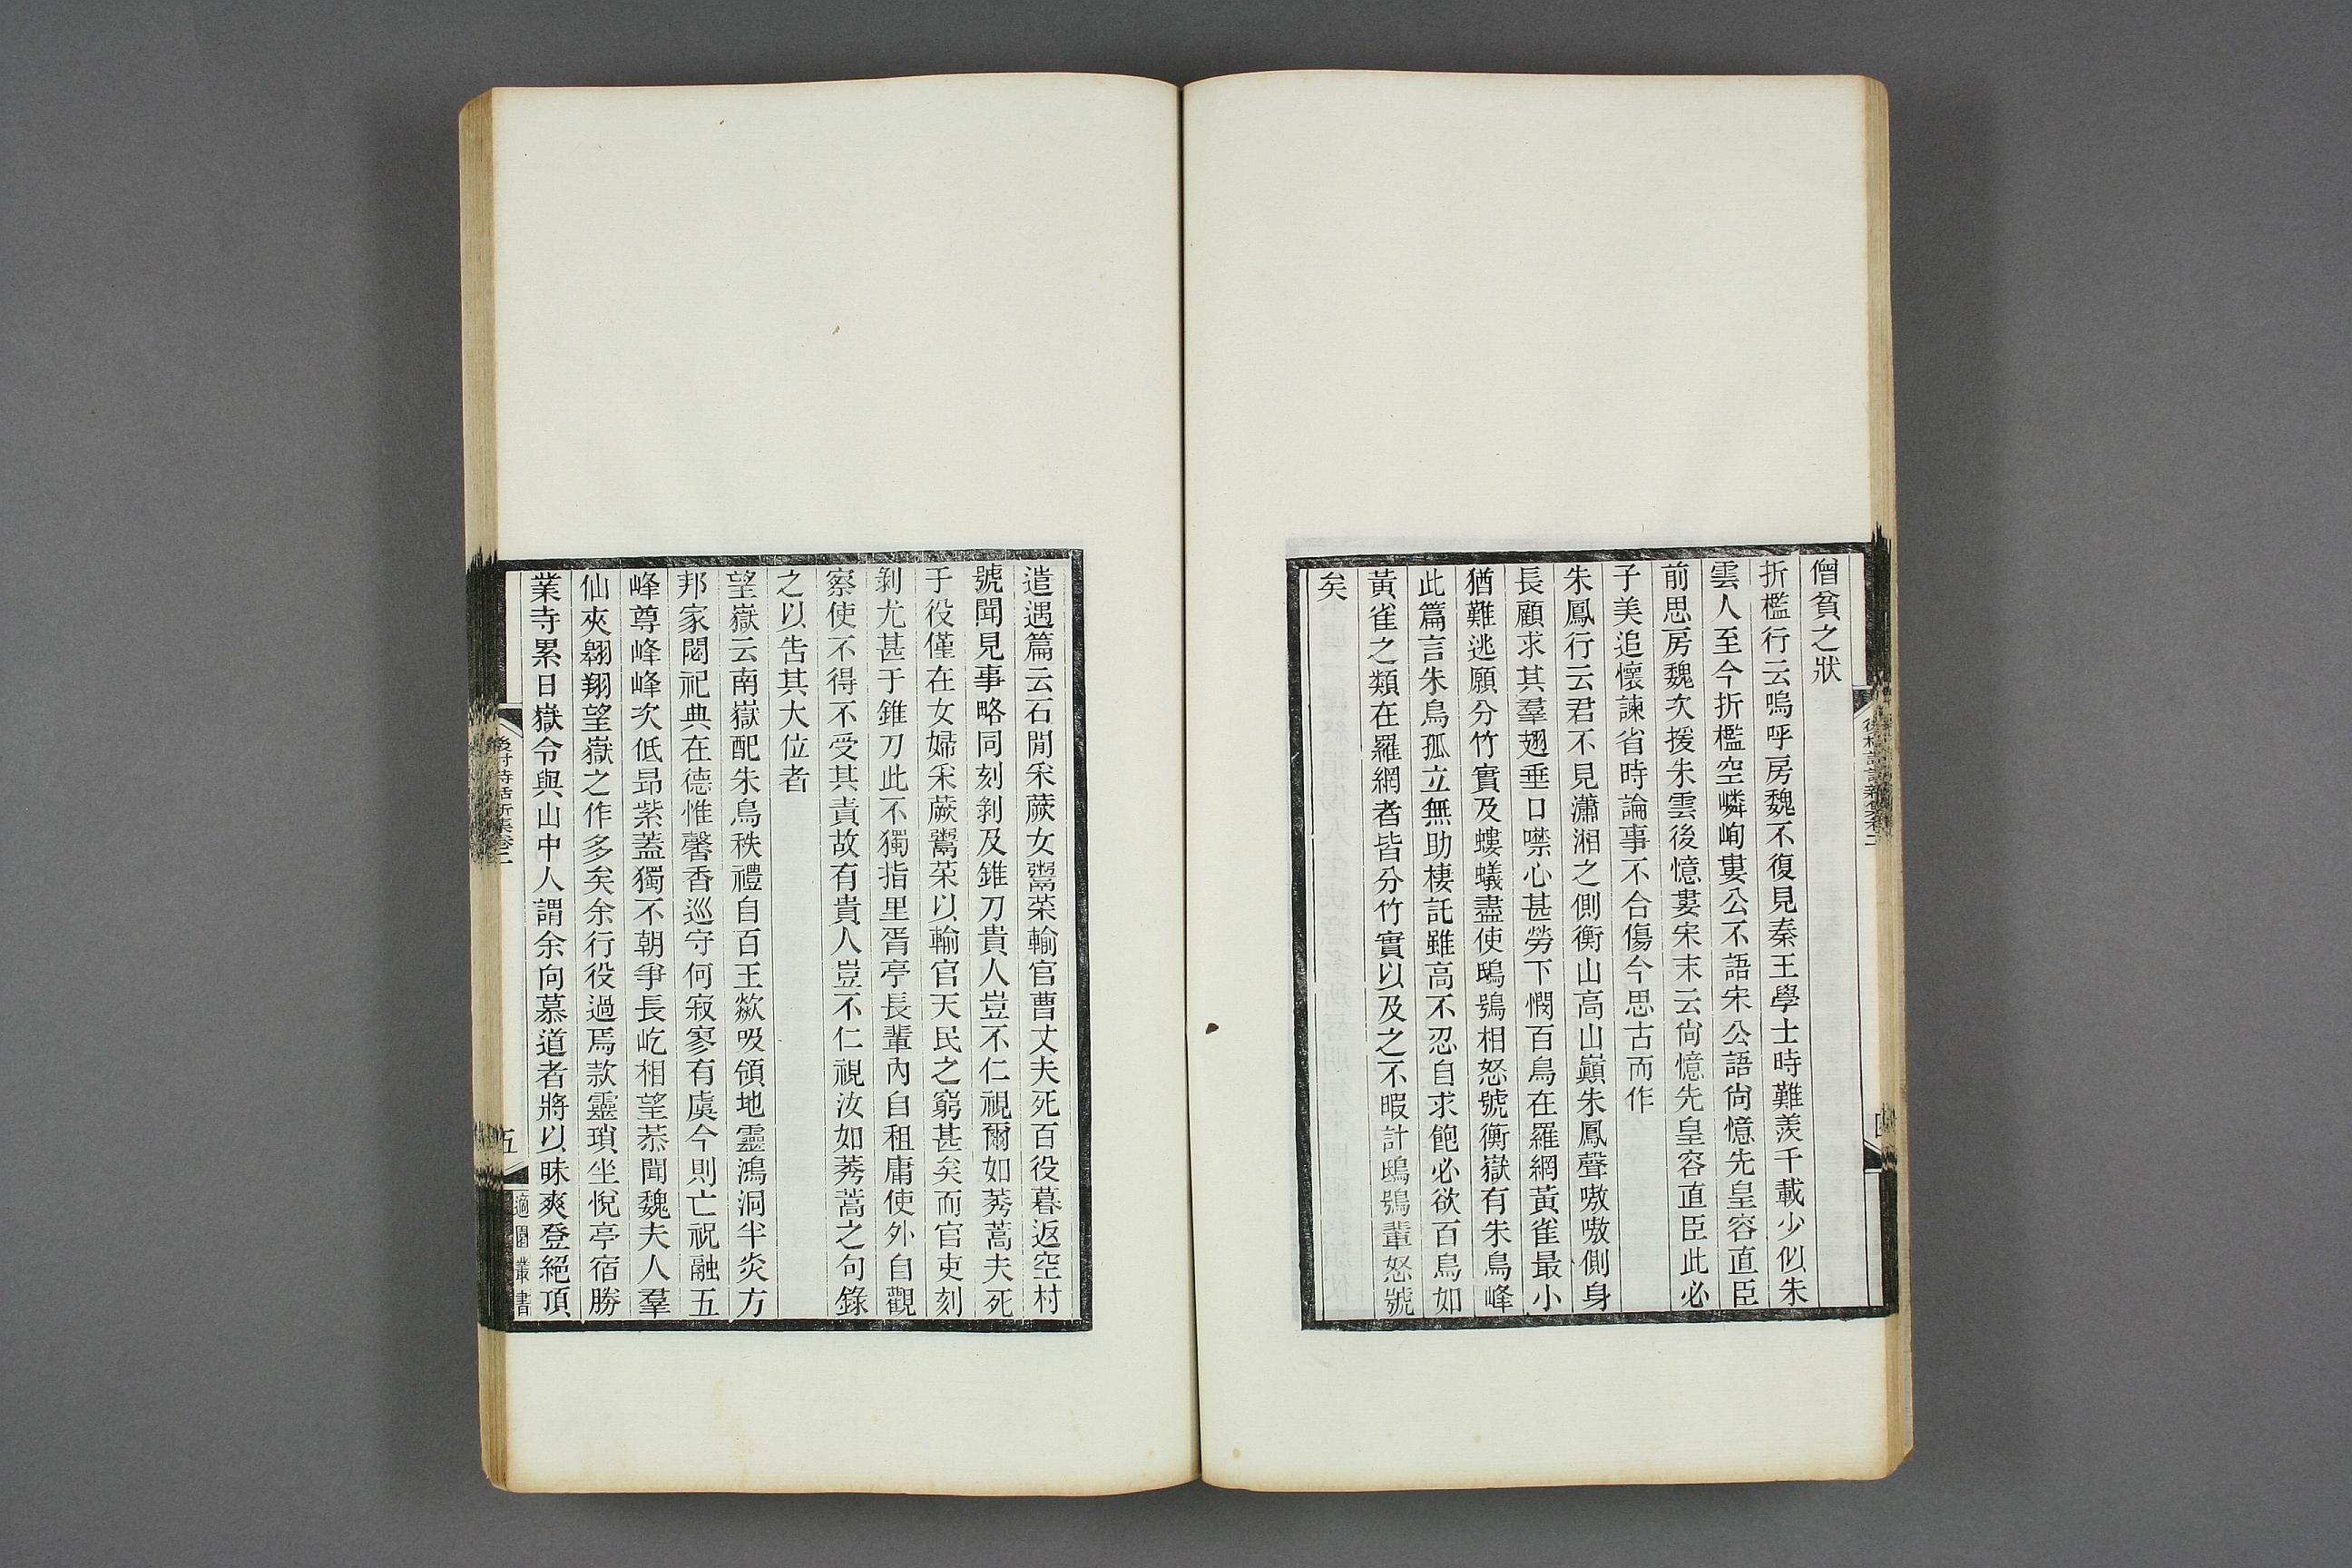 僧貧之狀
折檻行云嗚呼房魏不復見秦王學士時難羨千載少似朱
雲人至今折檻空嶙峋婁公不語宋公語尙憶先皇容直臣
前思房魏次援朱雲後憶婁宋末云尙憶先皇容直臣此必
子美追懷諫省時論事不合傷今思古而作
朱鳳行云君不見瀟湘之側衡山高山巔朱鳳聲嗷嗷側身
長顧求其羣翅垂口噤心甚勞下憫百鳥在羅網黃雀最小
猶難逃願分竹實及螻蟻盡使鴟鴞相怒號衡嶽有朱鳥峰
此篇言朱鳥孤立無助棲託雖高不忍自求飽必欲百鳥如
黃雀之類在羅網者皆分竹實以及之不暇計鴟鴞輩怒號
矣
後村詩話新集卷二
四
遣遇篇云石閒采蕨女鬻菜輸官曹丈夫死百役暮返空村
號聞見事略同刻剝及錐刀貴人豈不仁視爾如莠蒿夫死
于役僅在女婦采蕨鬻菜以輸官天民之窮甚矣而官吏刻
剝尤甚于錐刀此不獨指里胥亭長輩內自租庸使外自觀
察使不得不受其責故有貴人豈不仁視汝如莠蒿之句錄
之以吿其大位者
望嶽云南嶽配朱鳥秩禮自百王歘吸領地靈鴻洞半炎方
邦家閟祀典在德惟馨香巡守何寂寥有虞今則亡祝融五
峰尊峰峰次低昂紫蓋獨不朝爭長屹相望恭聞魏夫人羣
仙夾翱翔望嶽之作多矣余行役過焉款靈瑣坐悅亭宿勝
業寺累日嶽令與山中人謂余向慕道者將以昧爽登絕頂
後村詩話新集卷二
五
適園叢書